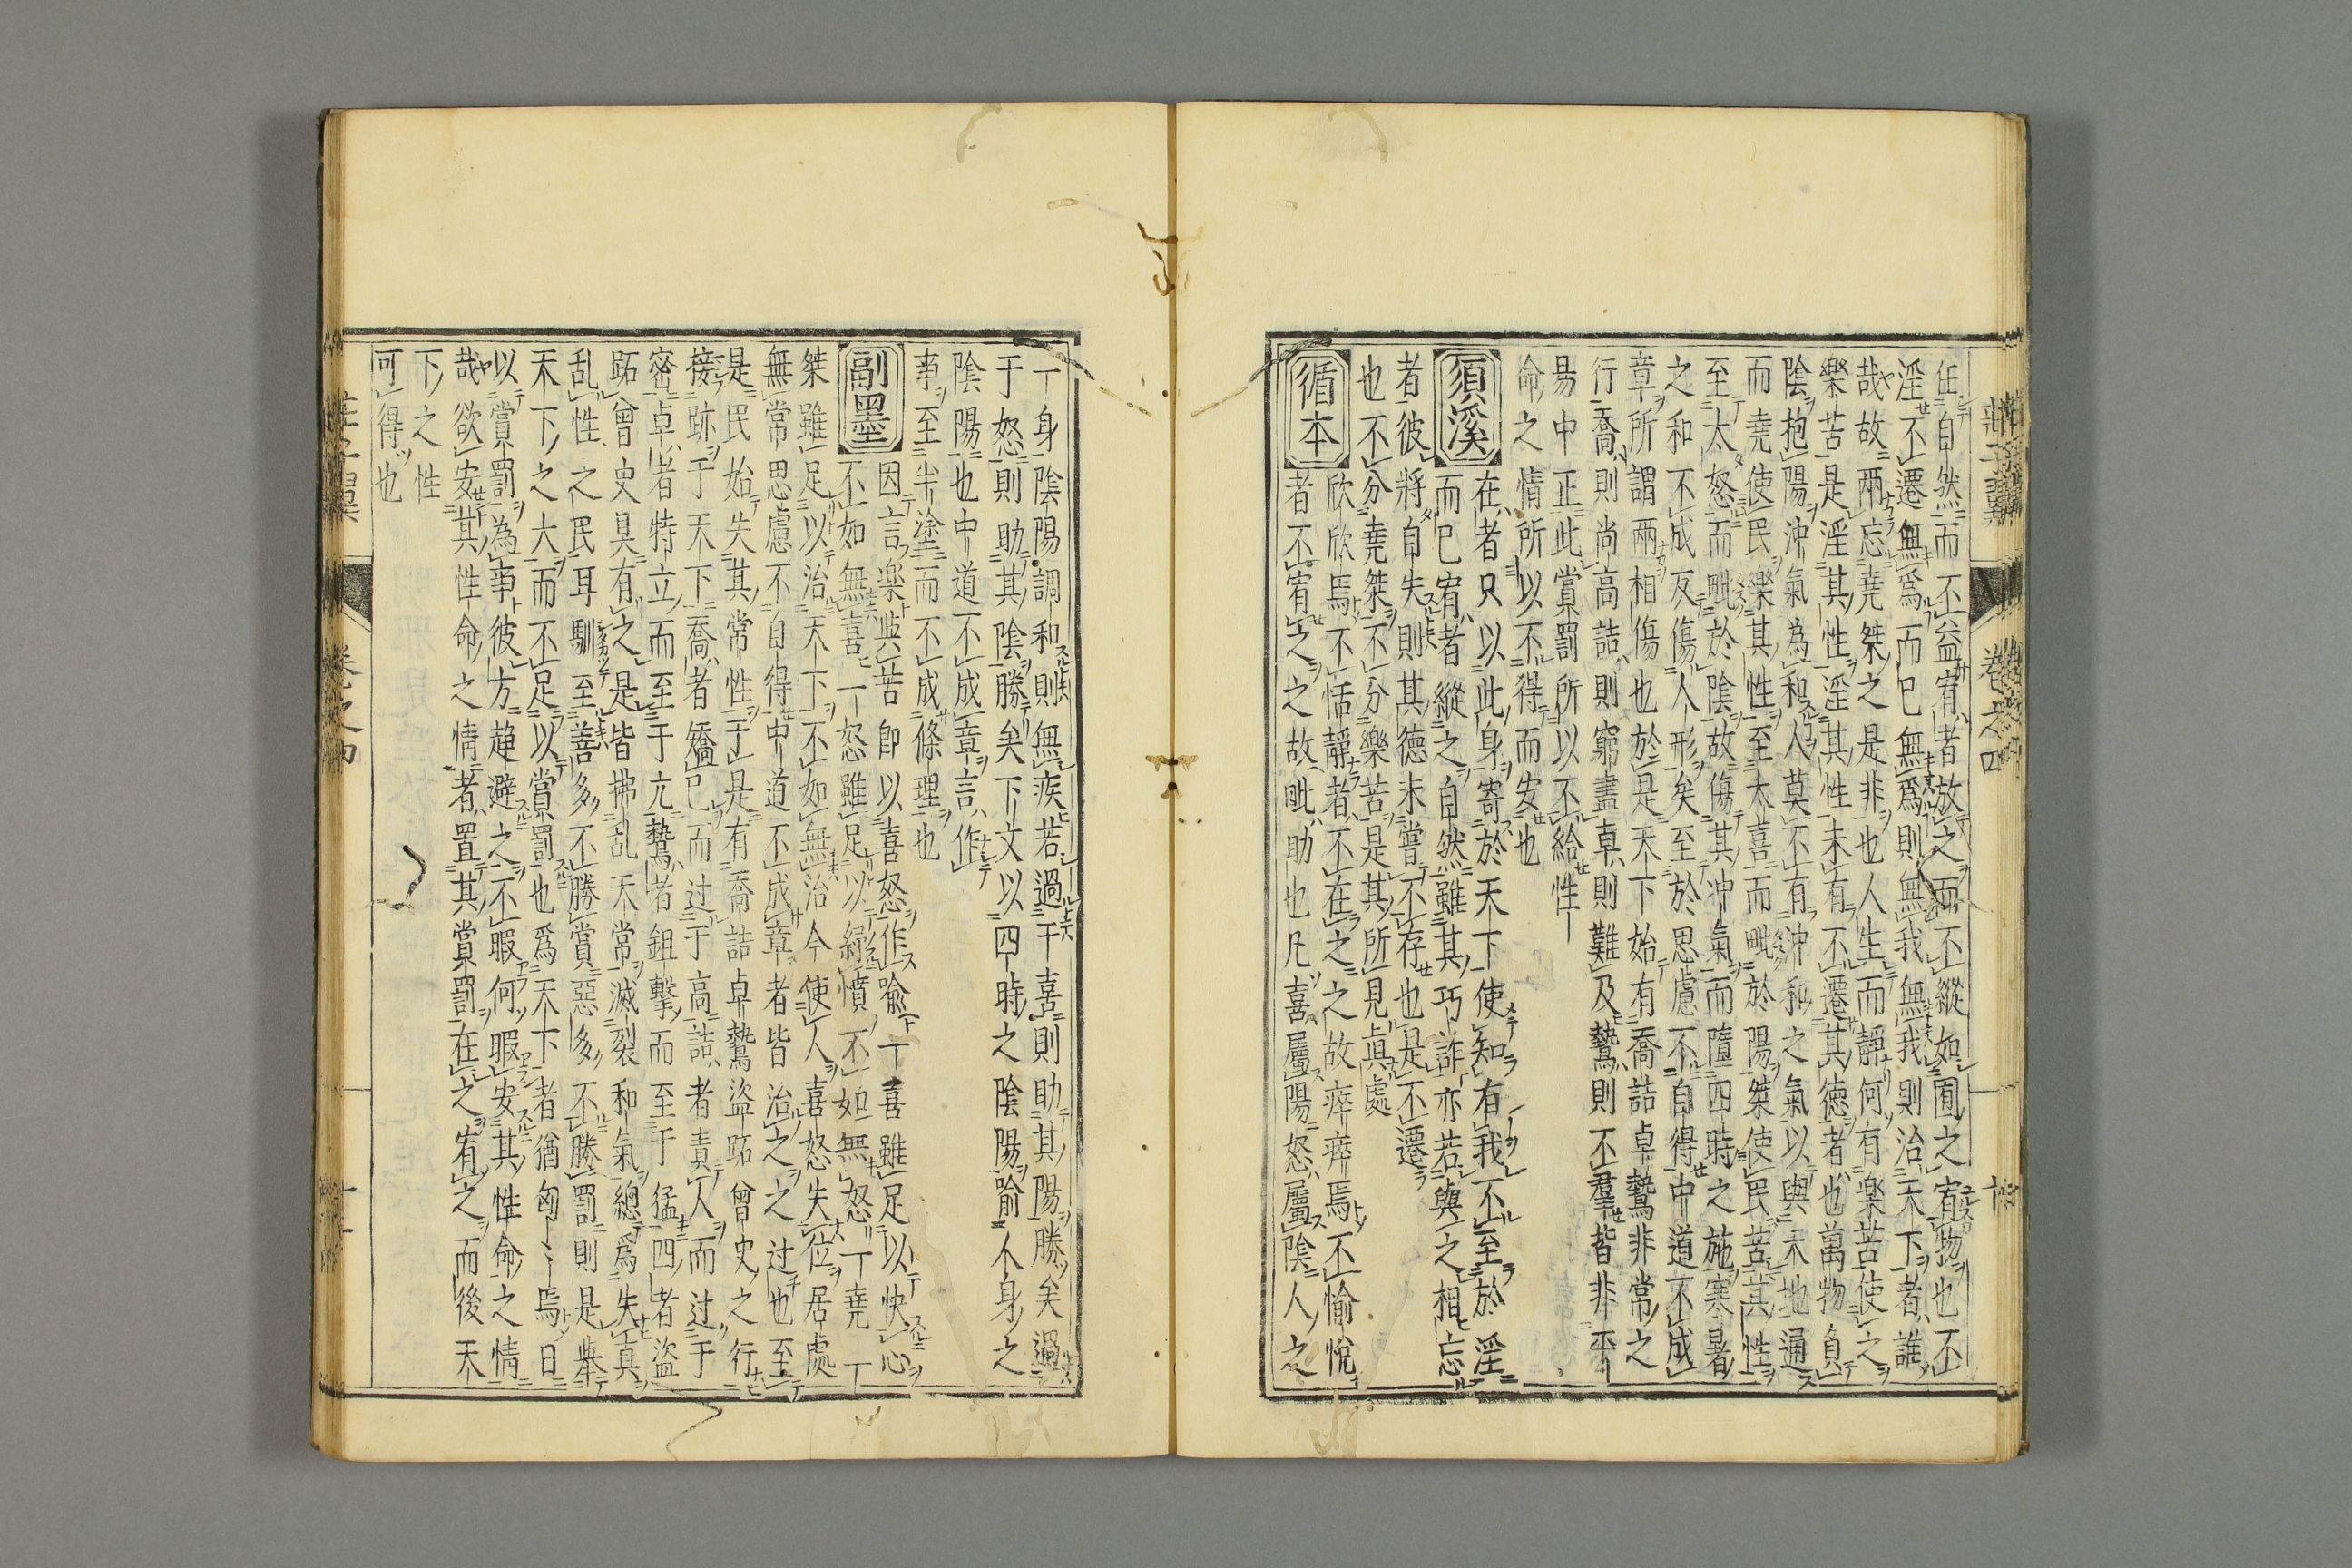 任自然而不益宥者放之而不縱如囿之宥物也不
淫不遷無爲而已無爲則無我無我則治天下者誰
哉故兩忘堯桀之是非也人生而靜何有楽苦使之
樂苦是淫其性淫其性未有不遷其徳者也萬物負
陰抱陽沖氣為和人莫不有沖和之氣以與天地通
而堯使民樂其性至太喜而毗於陽桀使民苦其性
至太怒而毗於陰故傷其冲氣而墮四時之施寒暑
之和不成反傷人形矣至於思慮不自得中道不成
章所謂兩相傷也於是天下始有喬詰卓鷙非常之
行喬則尚高詰則窮盡卓則難及鷙則不羣皆非平
易中正此賞罰所以不給性
命之情所以不得而安也
須溪
在者只以此身寄於天下使知有我不至於淫
而已宥者縱之自然雖其巧詐亦若與之相忘
者彼將自失則其徳未嘗不存也是不遷
也不分堯桀不分樂苦是其所見真處
循本
欣欣焉不恬靜者不在之之故瘁瘁焉不愉悅
者不宥之之故毗助也凡喜屬陽怒屬陰人之
一身陰陽調和則無疾若過于喜則助其陽勝矣過
于怒則助其陰勝矣下文以四時之陰陽喻人身之
陰陽也中道不成章言作
事至半塗而不成條理也
副墨
因言楽與苦即以喜怒作喻一喜雖足以快心
不如無喜一怒雖足以紓憤不如無怒一堯一
桀雖足以治天下不如無治今使人喜怒失位居處
無常思慮不自得中道不成章者皆治之之过也至
是民始失其常性于是有喬詰卓鷙盜跖曾史之行
接跡于天下喬者矯已而过于高詰者責人而过于
密卓者特立而至于亢鷙者鉏擊而至于猛四者盜
跖曾史具有之是皆拂乱天常滅裂和氣總爲失真
乱性之民耳馴至善多不勝賞惡多不勝罰則是舉
天下之大而不足以賞罰也爲天下者猶匈〻焉日
以賞罰為事彼方趨避之不暇何暇安其性命之情
哉欲安其性命之情者置其賞罰在之宥之而後天
下之性
可得也
巻之四